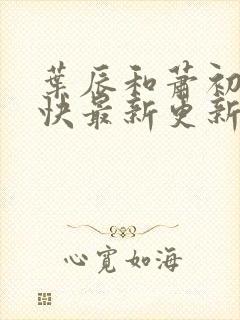 葉辰和蕭初
快最新更新
心寬如海